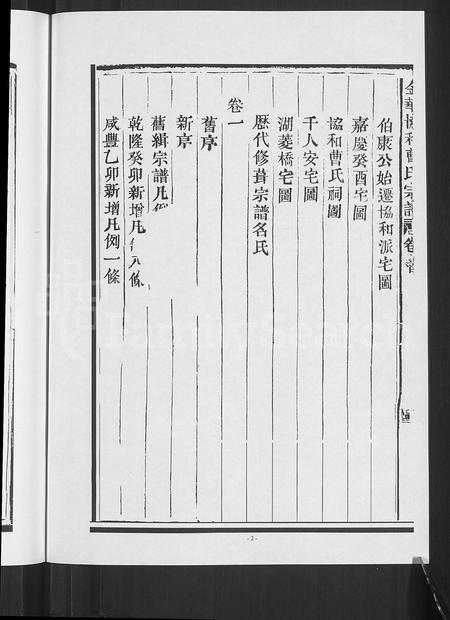 金華協和曹氏宗譜卷首
伯康公始遷協和派宅圖
嘉慶癸酉宅圖
協和曹氏祠圖
千人安宅圖
湖菱橋宅圖
歷代修葺宗譜名氏
卷一
舊序
新序
舊緝宗譜凡例
乾隆癸卯新增凡例 條
咸豐乙卯新增凡例一條
-2-
FamilySearch